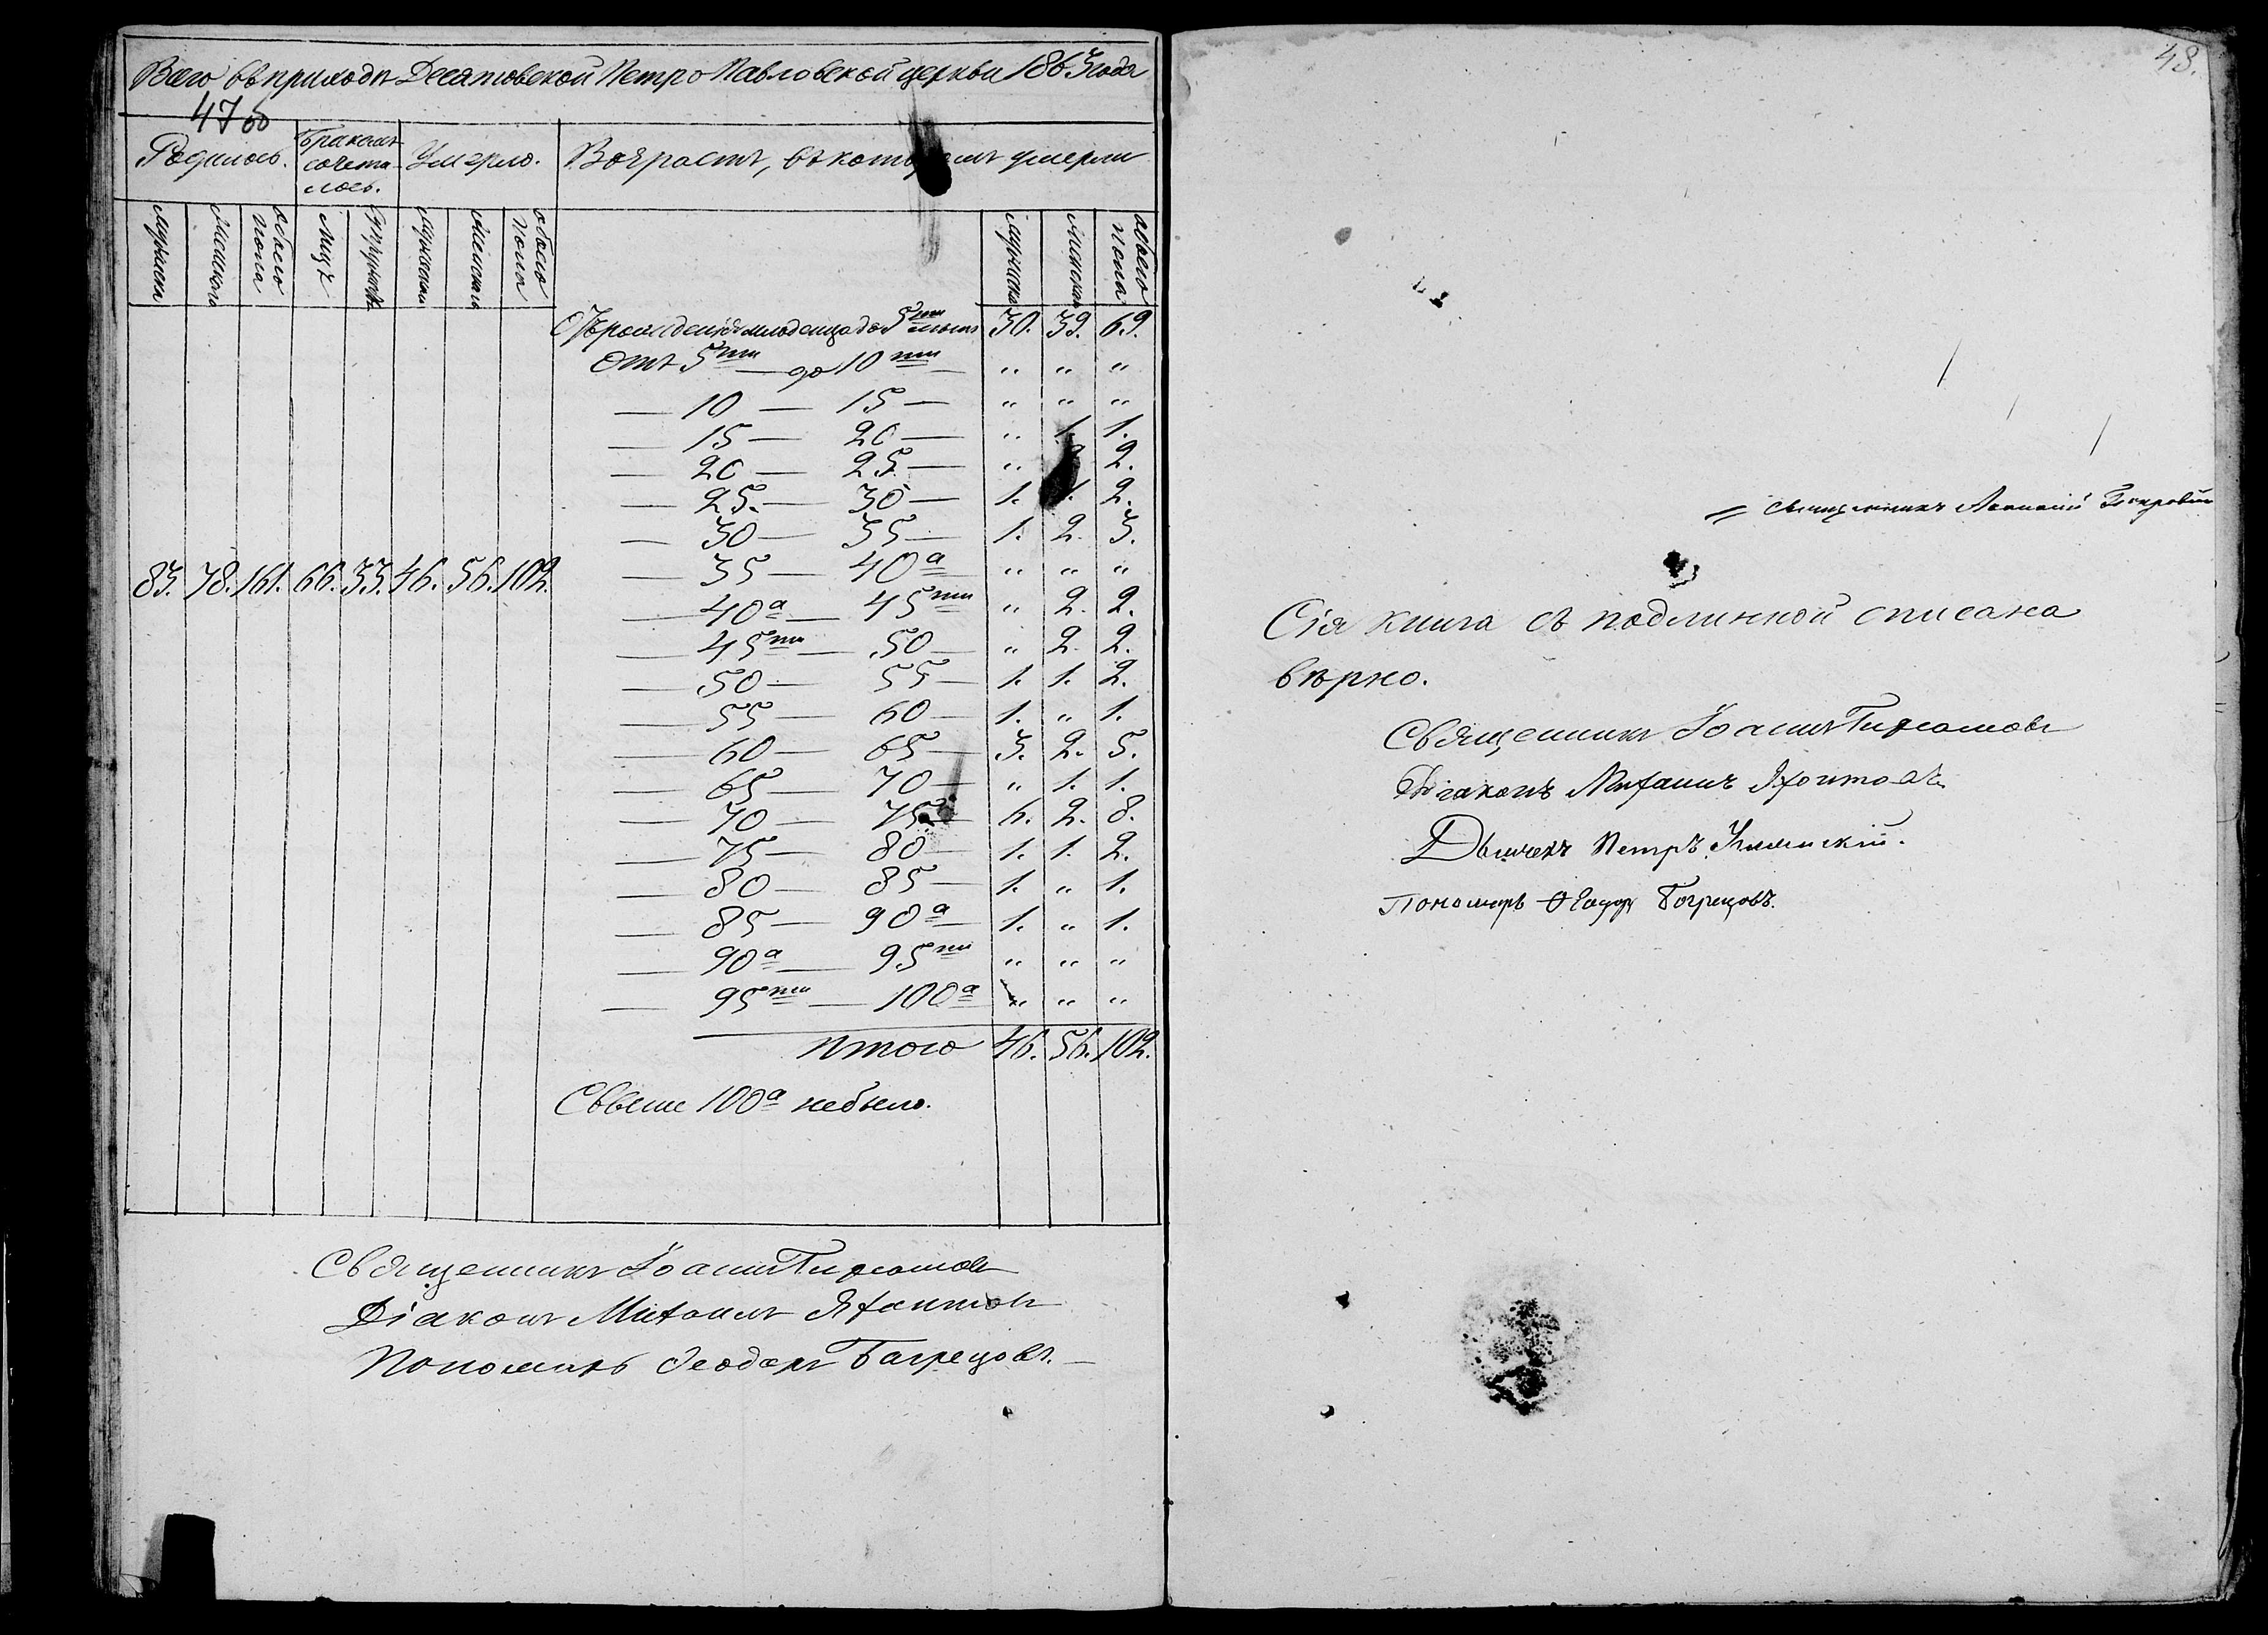 Всего въ приходѣ Десятовской Петро Павловской церкви 1863 года
47 об
Родилось. Бракомъ сочета-лось. Умерло. Возрастъ, въ которомъ умерли
мужеска женскаго обоего пола лицъ супружествъ мужеска женскаго обоего пола мужеска женска обоего пола
Отъ рожденія младенца до 5ти лѣтъ 30. 39. 69.
Отъ 5ти — до 10ти — " " "
— 10 — 15 — " " "
— 15 — 20 — " 1. 1.
— 20 — 25. — " 2.
— 25. — 30 — 1. 1. 2.
— 30 — 35 — 1. 2. 3.
83. 78. 161. 66. 33. 46. 56. 102.
— 35 — 40а " " "
— 40а — 45ти " 2. 2.
— 45ти — 50 — " 2. 2.
— 50 — 55 — 1. 1. 2.
— 55 — 60 — 1. " 1.
— 60 — 65 — 3. 2. 5.
— 65 — 70 — " 1. 1.
— 70 — 75 — 6. 2. 8.
— 75 — 80 — 1. 1. 2.
— 80 — 85 — 1. " 1.
— 85 — 90а — 1. " 1.
— 90а — 95ти " " "
— 95ти — 100а " " "
Итого 46. 56. 102.
Свыше 100а небыло.
Священникъ Іоаннъ
Діаконъ Михаилъ Яхонтовъ
Пономарь Ѳеодоръ Багрецовъ. —
48.
Священникъ
Сія книга съ подлинной списана
вѣрно.
Священникъ Іоаннъ
Діаконъ Михаилъ Яхонтовъ.
Дьячекъ Петръ
Пономарь Ѳеодоръ Багрецовъ.